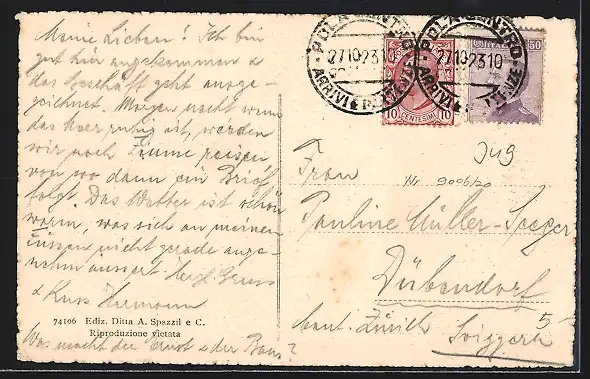 Meine Lieben! Ich bin
gut hier angekommen &
das Geschäft geht ausge-
zeichnet. Morgen nacht wenn
das Meer ruhig ist, werden
wir nach Fiume reisen
von wo dann ein Brief
folgt. Das Wetter ist schön
warm, was sich an meinen
Füssen nicht gerade ange-
nehm äussert. Herzl. Gruss
& Kuss Hermann
74106 Ediz. Ditta A. Spazzil e C.
Riproduzione vietata
Was macht der Ernst & der Bau?
POLA CENTRO
27 10 23 10
ARRIVI E PARTENZE
POLA CENTRO
27 10 23 10
10 CENTESIMI 10
50
Frau
Pauline Müller-Seeger
Dübendorf
Cant. Zürich
Svizzera
5